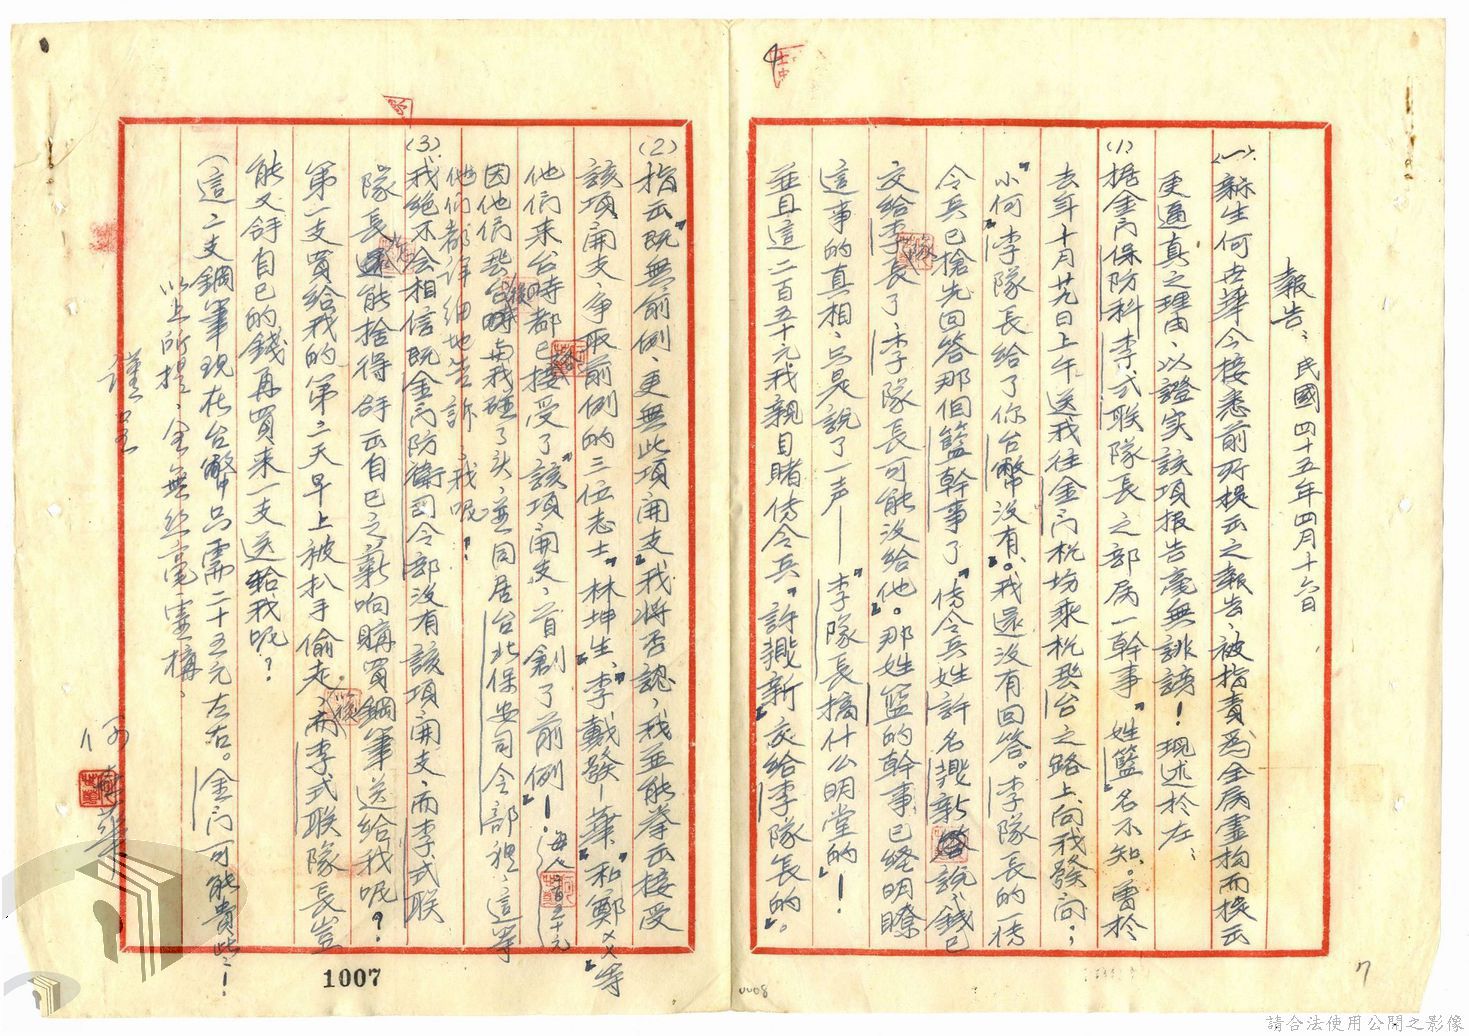 報告：民國四十五年四月十六日
(一)窃生何世華今接悉前所核示之報告，被指責為全屬虛构而核示
更逼真之理由，以證实該項报告毫無誹謗！現述於左：
(1)据金门保防科李式联隊長之部屬一幹事"姓籃"名不知。曾於
去年十月廿九日上午送我往金门机场乘机赴台之路上，向我發问；
"小何"李隊長給了你台幣沒有。我還沒有回答。李隊長的一传
令兵已搶先回答那個籃幹事了"传令兵姓許名新說"錢已
交給李隊長了，李隊長可能沒給他。"那姓籃的幹事已經明瞭
這事的真相，只是說了一声——"李隊長搞什么明堂的"！
並且這二百五十元我親目睹传令兵"許新"交給李隊長的。
(2)指示"既無前例，更無此項開支"我將否認，我並能拳示接受
該項開支，爭取前例的三位志士"林坤生"、"李戴發－華"和"鄭××"等
他們来台時都已接受了"該項開支，首創了前例"！每人二百五十元
因他們赴台時與我碰了头，並同居台北保安司令部裡，這等
他們都詳細地告訴，我呢？
(3)我絕不会相信既金门防衛司令部沒有該項開支，而李式联
隊長還能捨得拿出自己之薪响購買鋼筆送給我呢？
第一支買給我的第二天早上被扒手偷走，而以後李式联隊長豈
能又拿自己的錢再買来一支送給我呢？
(這二支鋼筆現在台幣只需二十五元左右。金门可能貴些！
以上所提，全無絲毫虛構，
謹呈
何世華
1007
0008
7
4
請合法使用公開之影像